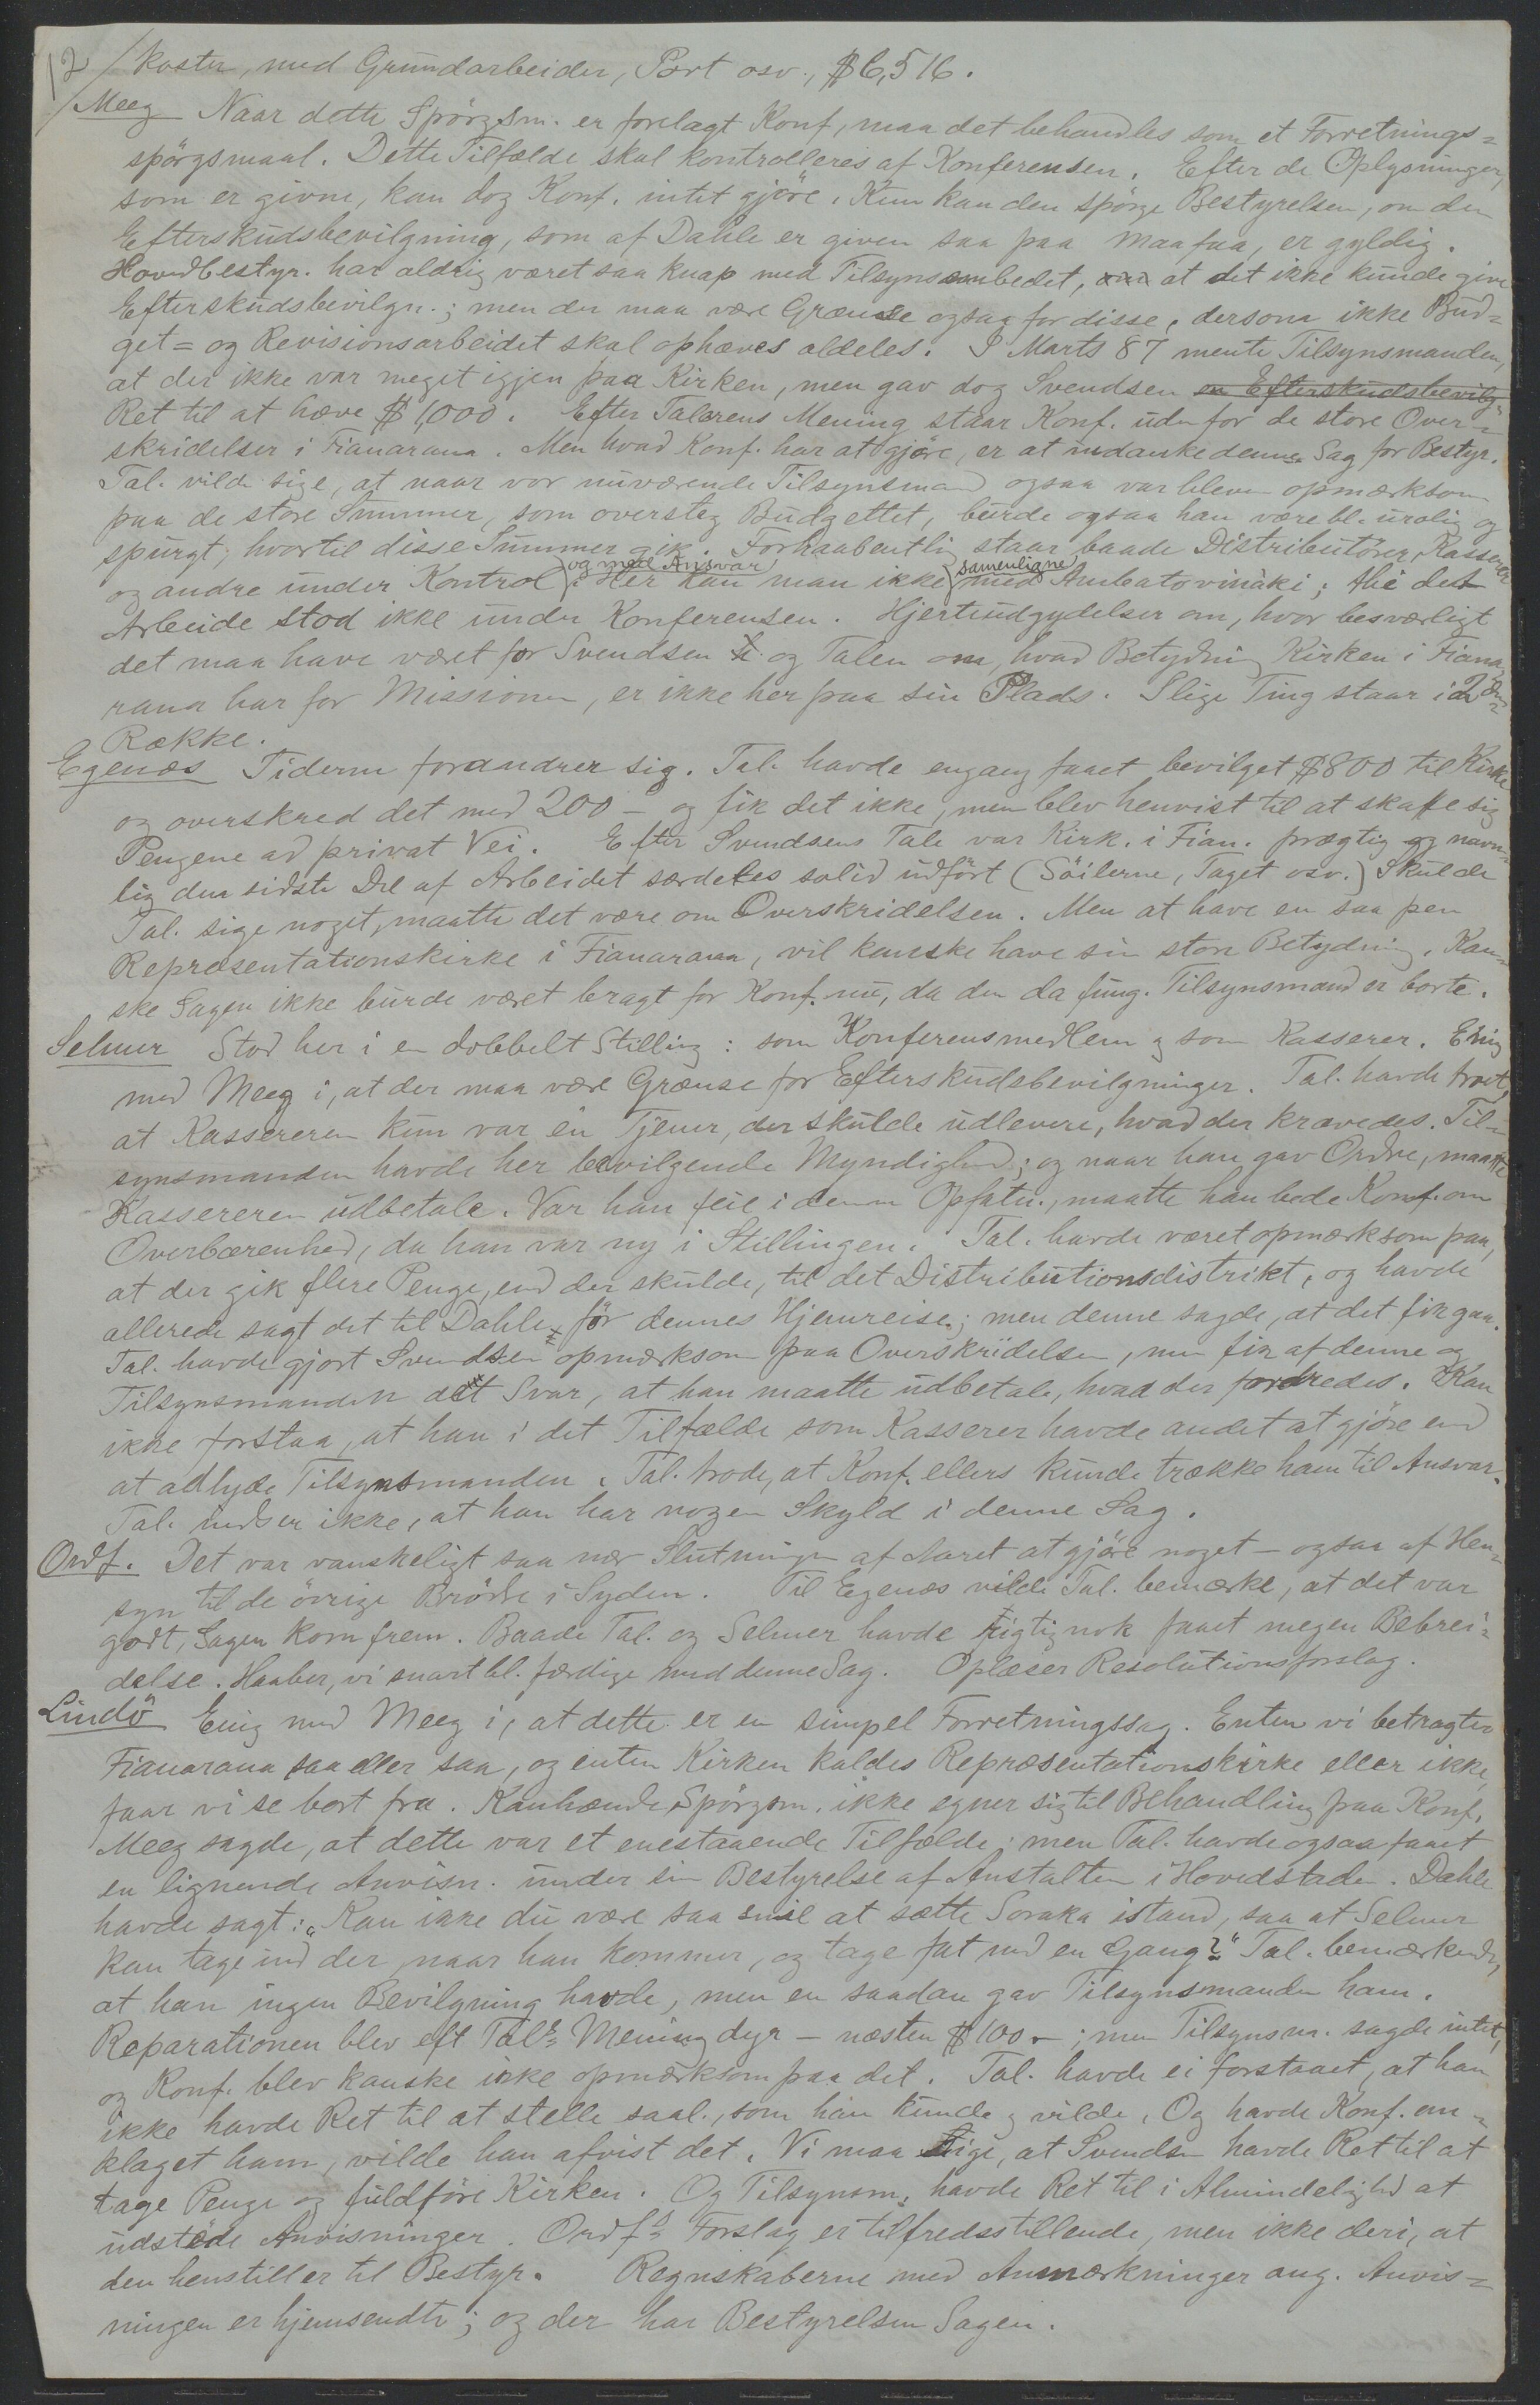 12/ koster, med Grundarbeider, Port osv., $6,516.
Meeg Naar dette Spörgsm. er forelagt Konf, maa det behandles som et Forretnings=
spörgsmaal. Dette Tilfælde skal kontrolleres af Konferensen. Efter de Oplysninger,
som er givne, kan dog Konf. intet gjöre. Kun kan den spörge Bestyrelsen, om den
Efterskudsbevilgning, som af Dahle er given saa paa Maafaa, er gyldig.
Hovedbestyr. har aldrig været saa knap med Tilsynsembedet, at det ikke kunde give
Efterskudsbevilgn.; men der maa være Grænse ogsaa for disse, dersom ikke Bud=
get= og Revisionsarbeidet skal ophæves aldeles. I Marts 87 mente Tilsynsmanden,
at der ikke var meget igjen paa Kirken, men gav dog Svendsen en Efterskudsbevilg-
Ret til at hæve $1,000. Efter Talerens Mening staar Konf. udenfor de store Over=
skridelser i Fianarana. Men hvad Konf. har at gjöre, er at indanke denne Sag for Bestyr.
Tal. vilde sige, at naar vor nuværende Tilsynsmand ogsaa var bleven opmærksom
paa de store Summer, som oversteg Budgettet, burde ogsaa han være bl. urolig og
spurgt, hvortil disse Summer gik. Forhaabentlig staar baade Distributörer, Kasserer
og andre under Kontrol og med Ansvar. Her kan man ikke samenligne med Ambatovinaki; thi det
Arbeide stod ikke under Konferensen. Hjerteudgydelser om, hvor besværligt
det maa have været for Svendsen og Talen om, hvad Betydning Kirken i Fiana-
rana har for Missionen, er ikke her paa sin Plads. Slige Ting staar i 2den
Række.
Egenæs Tiderne forandrer sig. Tal. havde engang faaet bevilget $800 til Kirke
og overskred det med 200 – og fik det ikke, men blev henvist til at skaffe sig
Pengene ad privat Vei. Efter Svendsens Tale var Kirk. i Fian. prægtig og navn=
lig den sidste Del af Arbeidet særdeles solid udfört (Söilerne, Taget osv.) Skulde
Tal. sige noget, maatte det være om Overskridelsen. Men at have en saa pen
Repræsentationskirke i Fianarana, vil kanske have sin store Betydning. Kan=
ske Sagen ikke burde været bragt for Konf. nu, da den da fung. Tilsynsmand er borte.
Selmer Stod her i en dobbelt Stilling: som Konferensmedlem og som Kasserer. Enig
med Meeg i, at der maa være Grænse for Efterskudsbevilgninger. Tal. havde troet,
at Kassereren kun var en Tjener, der skulde udlevere, hvad der krævedes. Til=
synsmanden havde her bevilgende Myndighed; og naar han gav Ordre, maatte
Kassereren udbetale. Var han feil i denne Opfatn., maatte han bede Konf. om
Overbærenhed, da han var ny i Stillingen. Tal. havde været opmærksom paa,
at der gik flere Penge, end der skulde, til det Distributionsdistrikt, og havde
allerede sagt det til Dahle för dennes Hjemreise; men denne sagde, at det fik gaa.
Tal. havde gjort Svendsen opmærksom paa Overskridelsen, men fik af denne og
Tilsynsmanden det Svar, at han maatte udbetale, hvad der fordredes. Kan
ikke forstaa, at han i det Tilfælde som Kasserer havde andet at gjöre end
at adlyde Tilsynsmanden. Tal. trode, at Konf. ellers kunde trække ham til Ansvar.
Tal. indser ikke, at han har nogen Skyld i denne Sag.
Ordf. Det var vanskeligt saa nær Slutningen af Aaret at gjöre noget – ogsaa af Hen=
syn til de övrige Brödre i Syden. Til Egenæs vilde Tal. bemærke, at det var
godt, Sagen kom frem. Baade Tal. og Selmer havde rigtignok faaet megen Bebrei=
delse. Haaber, vi snart bl. færdige med denne Sag. Oplæser Resolutionsforslag.
Lindö Enig med Meeg i, at dette er en simpel Forretningssag. Enten vi betragter
Fianarana saa eller saa, og enten Kirken kaldes Repræsentationskirke eller ikke,
faar vi se bort fra. Kanhænde Spörgsm. ikke egner sig til Behandling paa Konf.
Meeg sagde, at dette var et enestaaende Tilfælde; men Tal. havde ogsaa faaet
en lignende Anvisn. under sin Bestyrelse af Anstalten i Hovedstaden. Dahle
havde sagt: "Kan ikke du være saa snil at sætte Soraka istand, saa at Selmer
kan tage ind der, naar han kommer, og tage fat med en Gang?" Tal. bemærkede,
at han ingen Bevilgning havde, men en saadan gav Tilsynsmanden ham.
Reparationen blev eft Tal's Mening dyr – næsten $100 –; men Tilsynsm. sagde intet,
og Konf. blev kanske ikke opmærksom paa det. Tal. havde ei forstaaet, at han
ikke havde Ret til at stelle saal., som han kunde og vilde. Og havde Konf. an=
klaget ham, vilde han afvist det. Vi maa sige, at Svendsen havde Ret til at
tage Penge og fuldföre Kirken. Og Tilsynsm. havde Ret til i Almindelighed at
udstede Anvisninger. Ordf's Forslag er tilfredsstillende, men ikke deri, at
den henstiller til Bestyr. Regnskaberne med Anmærkninger ang. Anvis=
ningen er hjemsendte; og der har Bestyrelsen Sagen.